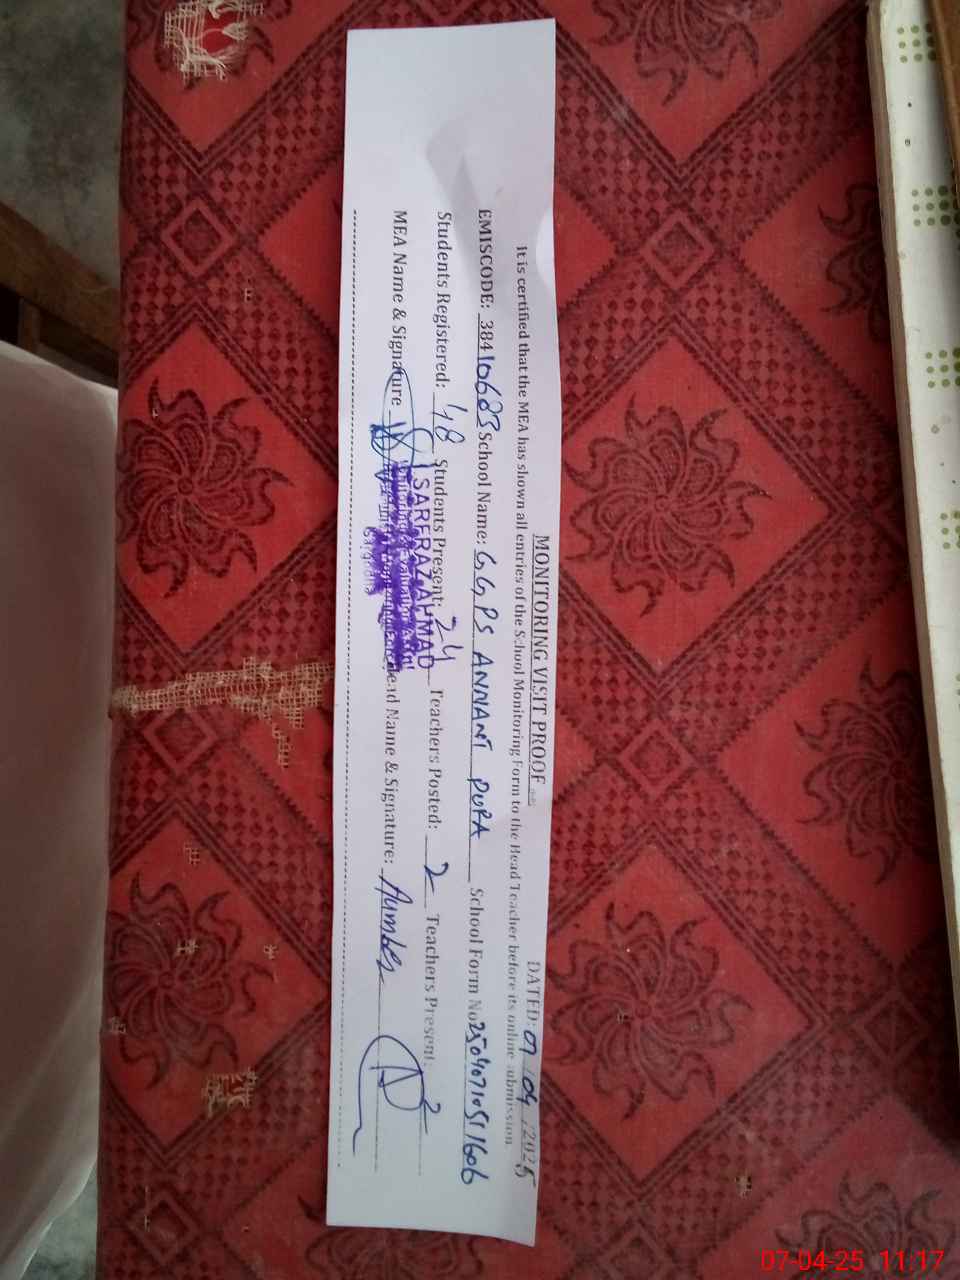 MONITORING VISIT PROOF
DATED: 07/04/2025
It is certified that the MEA has shown all entries of the School Monitoring Form to the Head Teacher before its online submission
EMISCODE: 38410683 School Name: GGPS ANNANT PURA School Form No 25040710511606
Students Registered: 48 Students Present: 24 Teachers Posted: 2 Teachers Present: 2
MEA Name & Signature Head Name & Signature:
SARFRAZ AHMAD
Monitoring & Evaluation Asstt
Sargodha
07-04-25 11:17